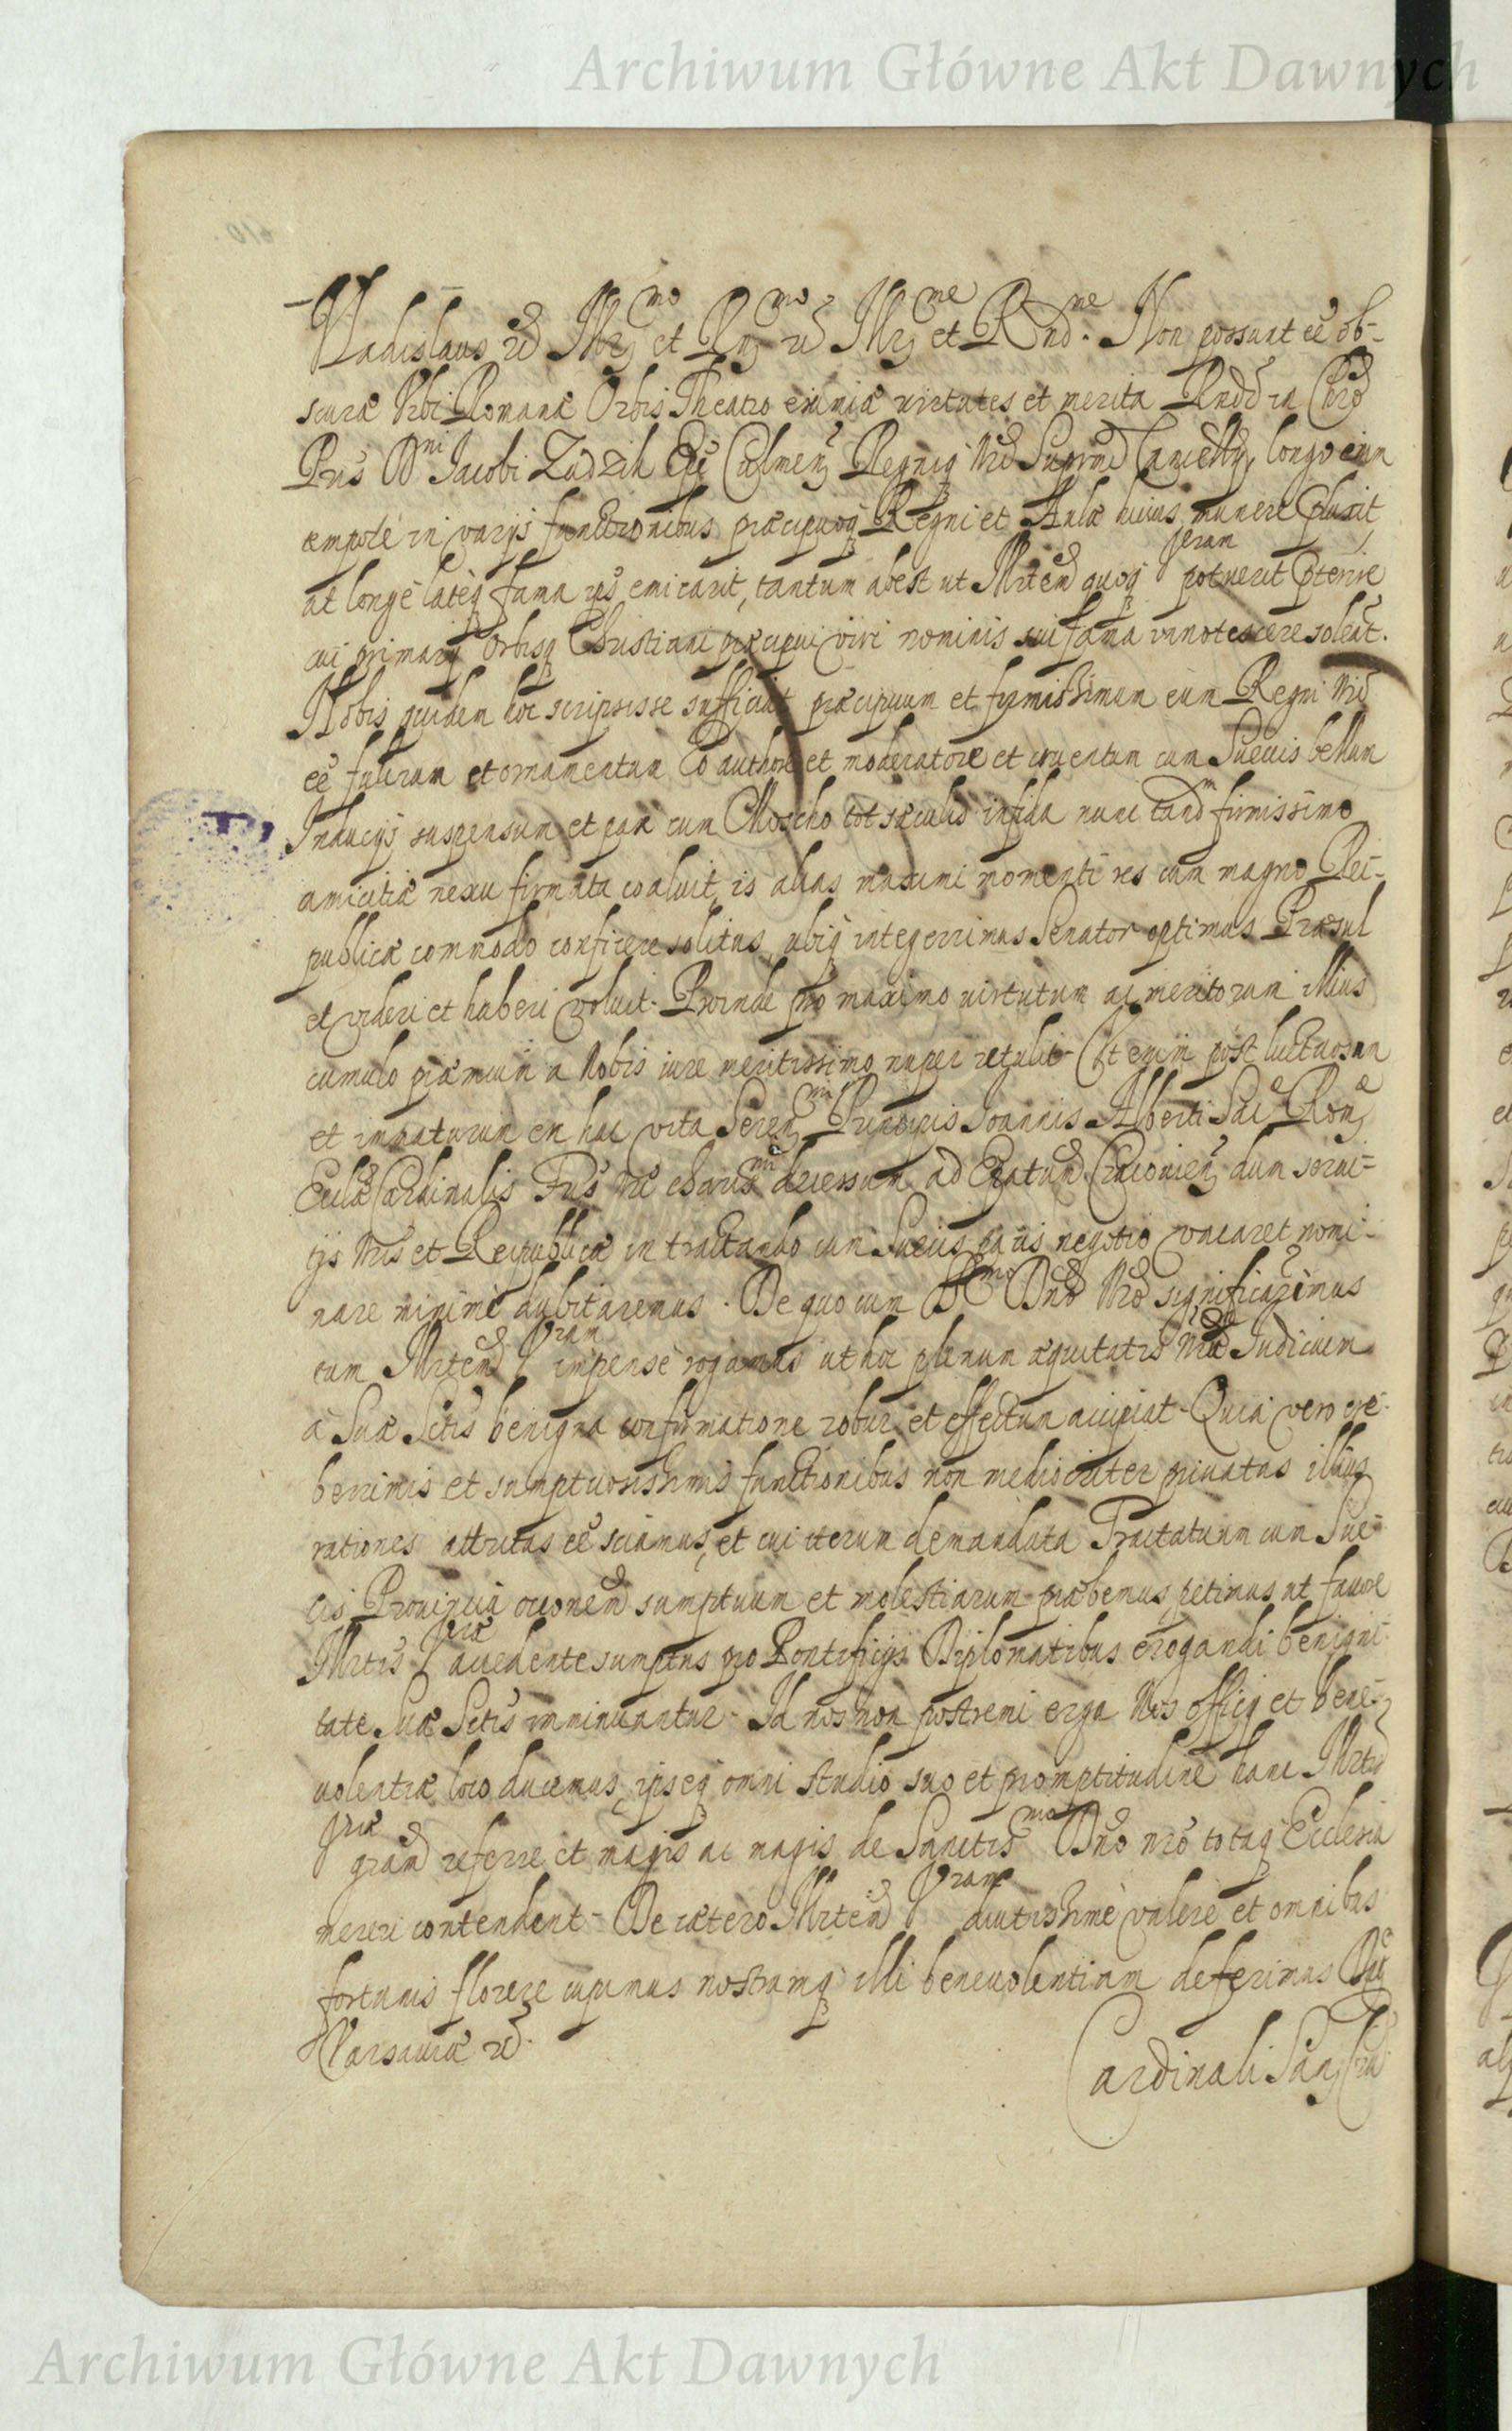 Archiwum Główne Akt Dawnych
Vladislaus etc Illr̃mo et Rñmo etc Illr̃me et Rndme. Non possunt eẽ ob-
scuræ Urbi Romanæ Orbis Theatro eximiæ virtutes et merita Rndĩ in Chrõ
Pris Dni Jacobi Zadzik Epĩ Culmeñ Regniq Nrĩ Supremi Cancellrÿ, longo enim
tempore in varijs functionibus præcipuoq Regni et Aulæ huius munere
at longè latèq fama eius emicavit, tantum abest ut Illrtem quoq Vram potuerit præterire
cui primarij Orbisq Christiani præcipui viri nominis sui fama innotescere soleat.
Nobis quidem hoc scripsisse sufficiat præcipuum et firmissimum eum Regni Nrĩ
eẽ fulcrum et ornamentum Eo authore et moderatore et cruentum cum Suecis bellum
Inducijs suspensum et pax cum Moscho tot sæculis infida nunc tandm firmissimo
amicitiæ nexu firmata coaluit, is alias maximi momenti res cum magno Rei-
publicæ commodo conficere solitus, ubiq integerrimus Senator optimus Præsul
et videri et haberi voluit. Proinde pro maximo virtutum ac meritorum illius
cumulo præmium a Nobis iure meritissimo nuper retulit. Ut enim post luctuosum
et immaturum ex hac vita Sereñmi Principis Joannis Alberti Sac Romæ
Ecclæ Cardinalis Fris Nri charissmi decessum ad Epatum Cracovieñ dum servi-
tijs Nris et Reipublicæ in tractando cum Suecis pacis negotio vacaret nomi-
nare minimè dubitaremus. De quo cum Smo Dno Nro significaremus
tum Illrtem Vram impensè rogamus ut hoc plenum æquitatis Nræ Judicium
à Suæ Sctis benigna confirmatione robur et effectum accipiat. Quia vero cre-
berrimis et sumptuosissimis functionibus non mediocriter privatas illius
rationes attritas eẽ sciamus, et cui iterum demandata Tractatuum cum Sue-
cis Provincia occõnem sumptuum et molestiarum præbemus petimus ut favore
Illrtis Vræ accedente sumptus pro Pontificijs Diplomatibus erogandi benigni-
tate Suæ Sctis imminuantur. Id nos non postremi erga Nos officij et bene-
volentiæ loco ducemus, ipseq omni studio suo et promptitudine hanc Illrtis
Vræ grãm referre et magis ac magis de Sanctismo Dno nro totaq Ecclesia
mereri contendent. De cætero Illrtem Vram diutissimè valere et omnibus
fortunis florere cupimus nostramq illi benevolentiam deferimus
Varsaviæ etc.
Cardinali
Archiwum Główne Akt Dawnych